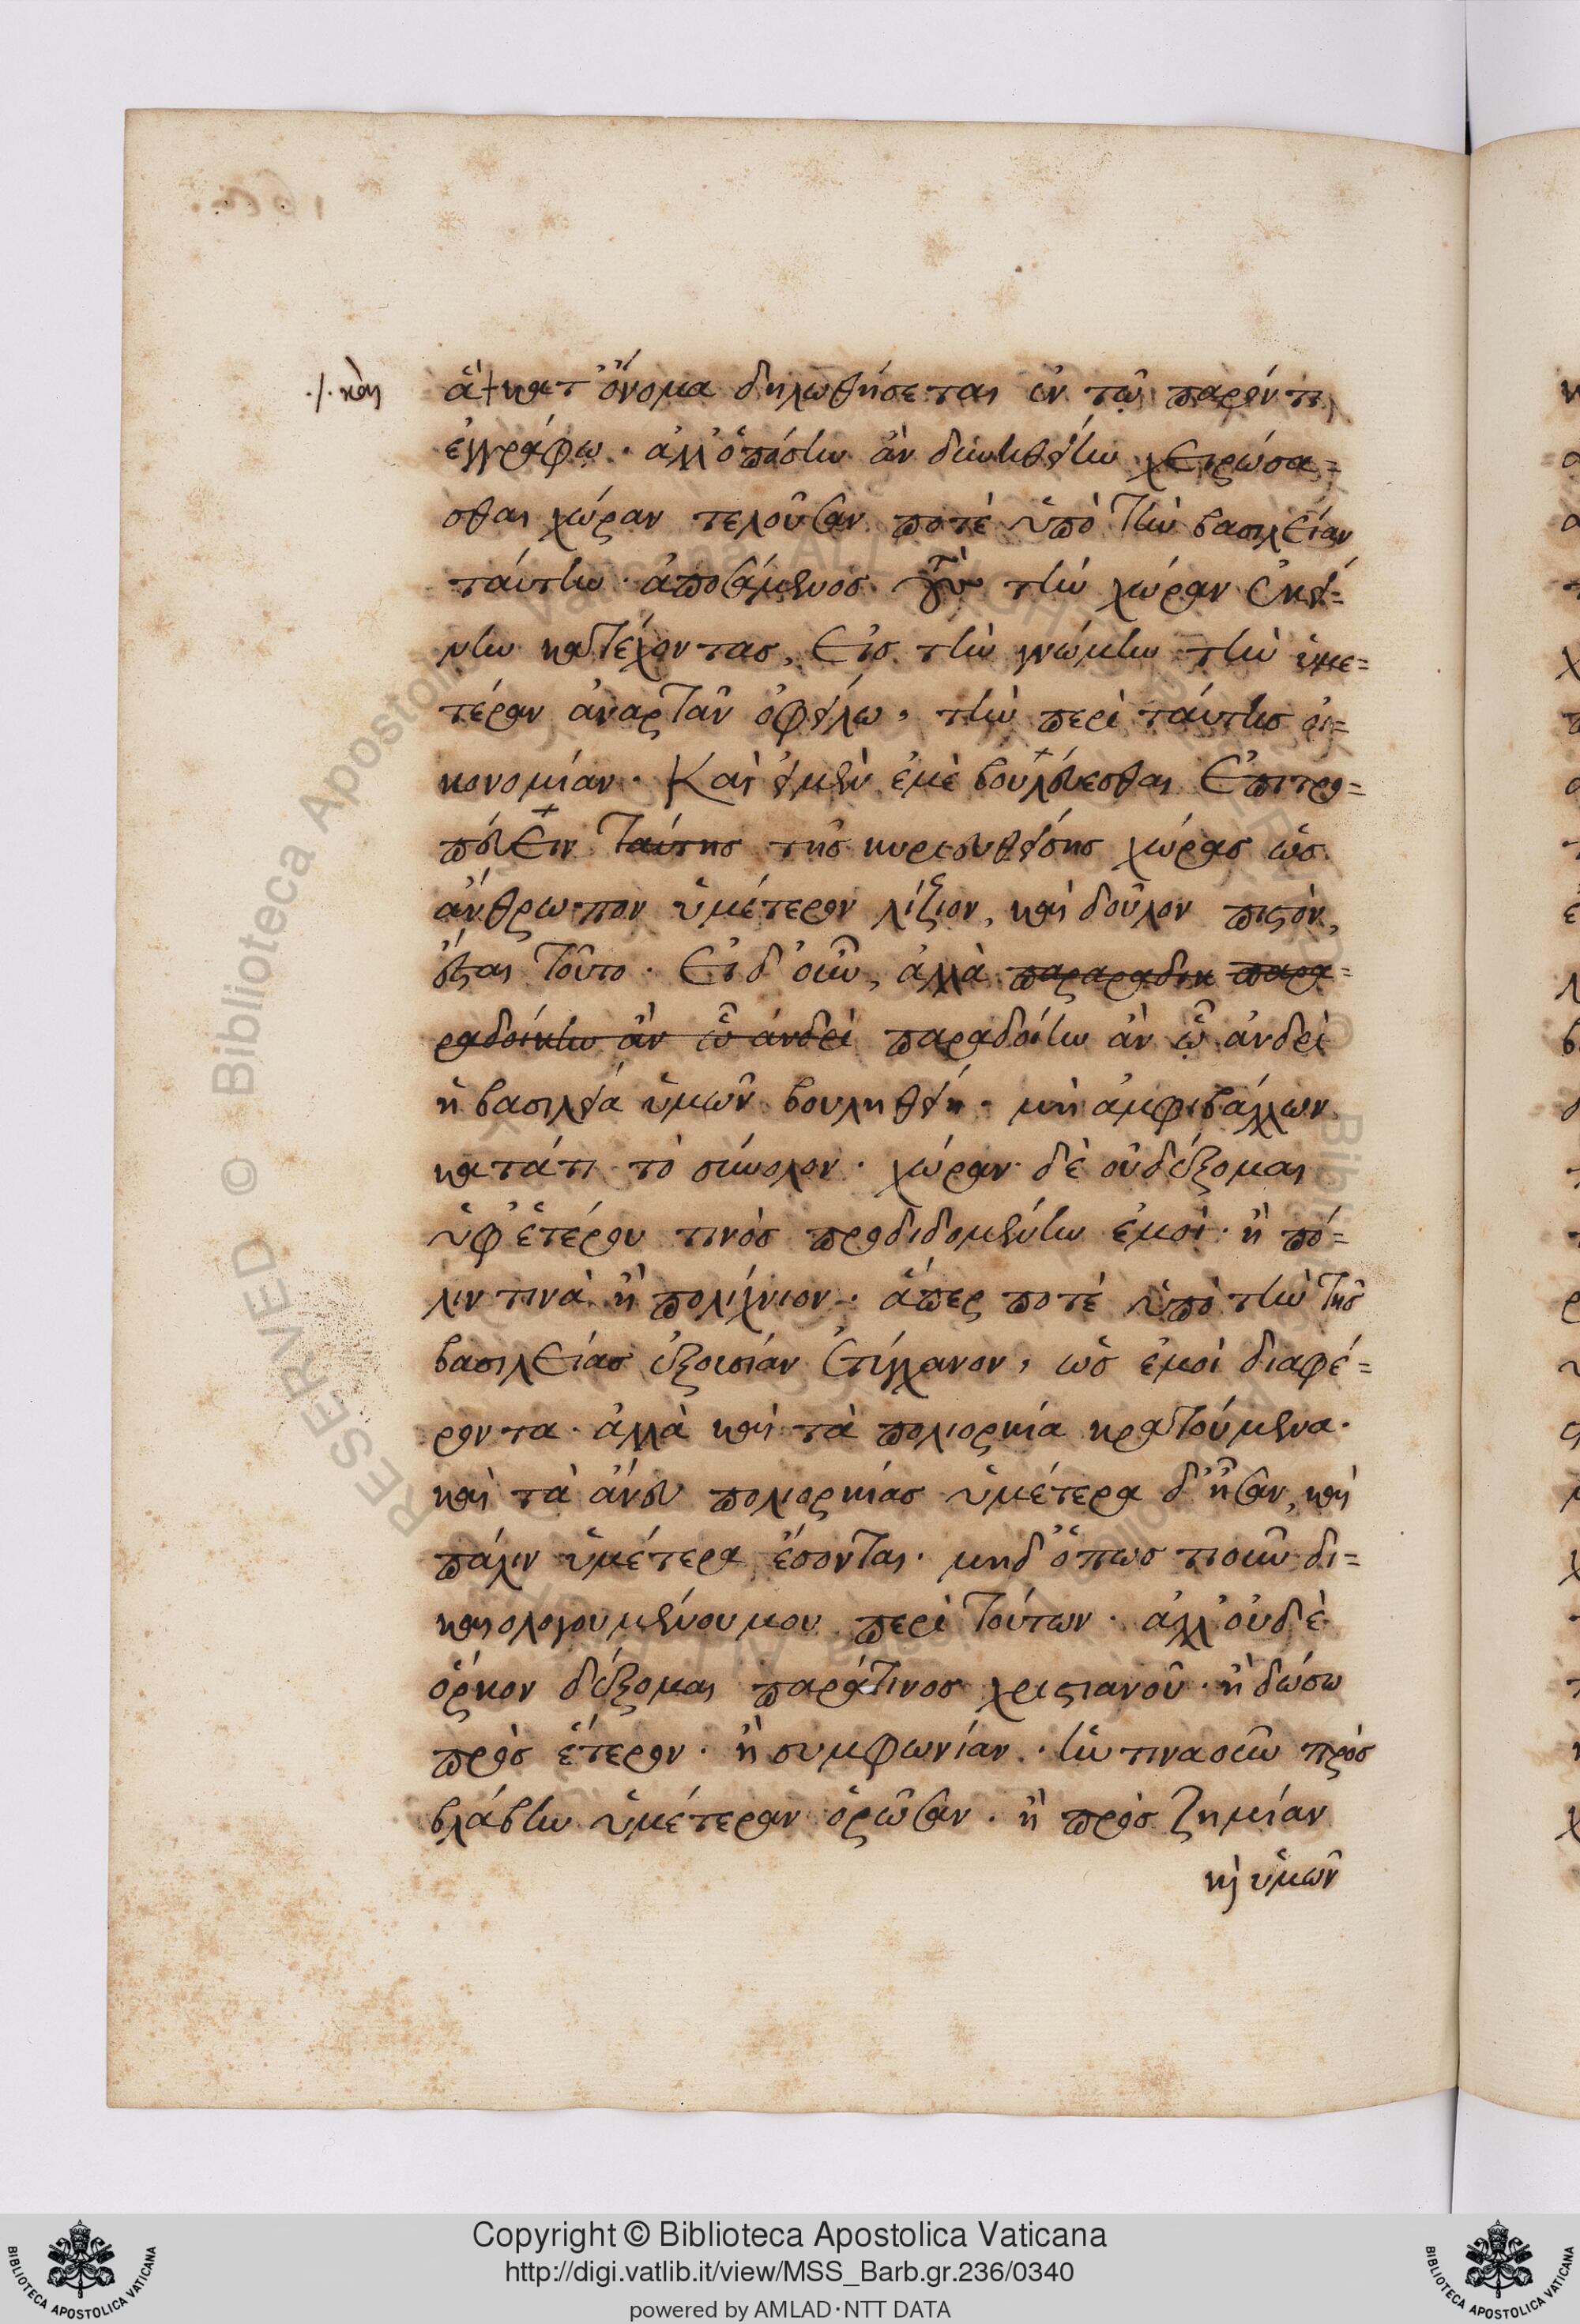 ./. καὶ
ἃ + κατ' ὄνομα δηλωθήσεται ἐν τῷ παρόντι
ἐγγράφω· ἀλλ' ὁπόσην ἂν δυνηθείην χειρώσα=
σθαι χώραν τελοῦσαν ποτὲ ὑπὸ τὴν βασιλείαν
ταύτην· ἀπωσάμενος τὴν χώραν ἐκεί=
νην κατέχοντας, εἰς τὴν γνώμην τὴν ὑμε=
τέραν ἀναρτᾶν ὀφείλω, τὴν περὶ ταύτης οἰ=
κονομίαν· Καὶ εἰ μὲν ἐμὲ βούλεσθαι ἐπιτρο=
πεύειν ταύτης τῆς κυριευθείσης χώρας ὡς
ἄνθρωπον ὑμέτερον λίζιον, καὶ δοῦλον πιστὸν,
ἔσται τοῦτο· Εἰ δ' οὖν, ἀλλὰ παραραδοικ παρα=
ραδοίκην ἂν ᾧ ἀνδρὶ παραδοίην ἂν ᾧ ἀνδρὶ
ἡ βασιλεία ὑμῶν βουληθείη· μὴ ἀμφιβάλλων
κατά τι τὸ σύνολον· χώραν δὲ οὐ δέξομαι
ὑφ' ἑτέρου τινὸς προδιδομένην ἐμοί· ἢ πό=
λιν τινὰ ἢ πολίχνιον· ἅπερ ποτὲ ὑπὸ τὴν τῆς
βασιλείας ἐξουσίαν ἐτύγχανον, ὡς ἐμοὶ διαφέ=
ροντα· ἀλλὰ καὶ τὰ πολιορκία κρατούμενα·
καὶ τὰ ἄνευ πολιορκίας ὑμέτερα δ' ἦσαν, καὶ
πάλιν ὑμέτερα ἔσονται· μηδ' ὅπως τιοῦν δι=
καιολογουμένου μου περὶ τούτων· ἀλλ' οὐδὲ
ὅρκον δέξομαι παρά τινος χριστιανοῦ· ἢ δώσω
πρὸς ἕτερον· ἢ συμφωνίαν· ἥν τινα οὖν πρὸς
βλάβην ὑμέτεραν ὁρῶσαν· ἢ πρὸς ζημίαν
κỳ ὑμῶν
Copyright © Biblioteca Apostolica Vaticana
http://digi.vatlib.it/view/MSS_Barb.gr.236/0340
powered by AMLAD·NTT DATA